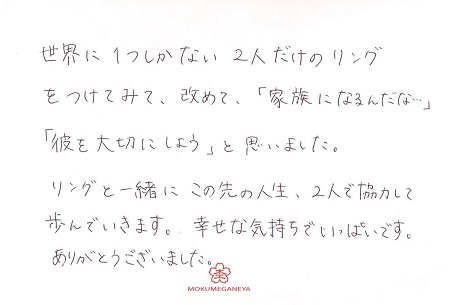 世界に1つしかない2人だけのリング
をつけてみて、改めて、「家族になるんだな…」
「彼を大切にしよう」と思いました。
リングと一緒にこの先の人生、2人で協力して
歩んでいきます。幸せな気持ちでいっぱいです。
ありがとうございました。
MOKUMEGANEYA